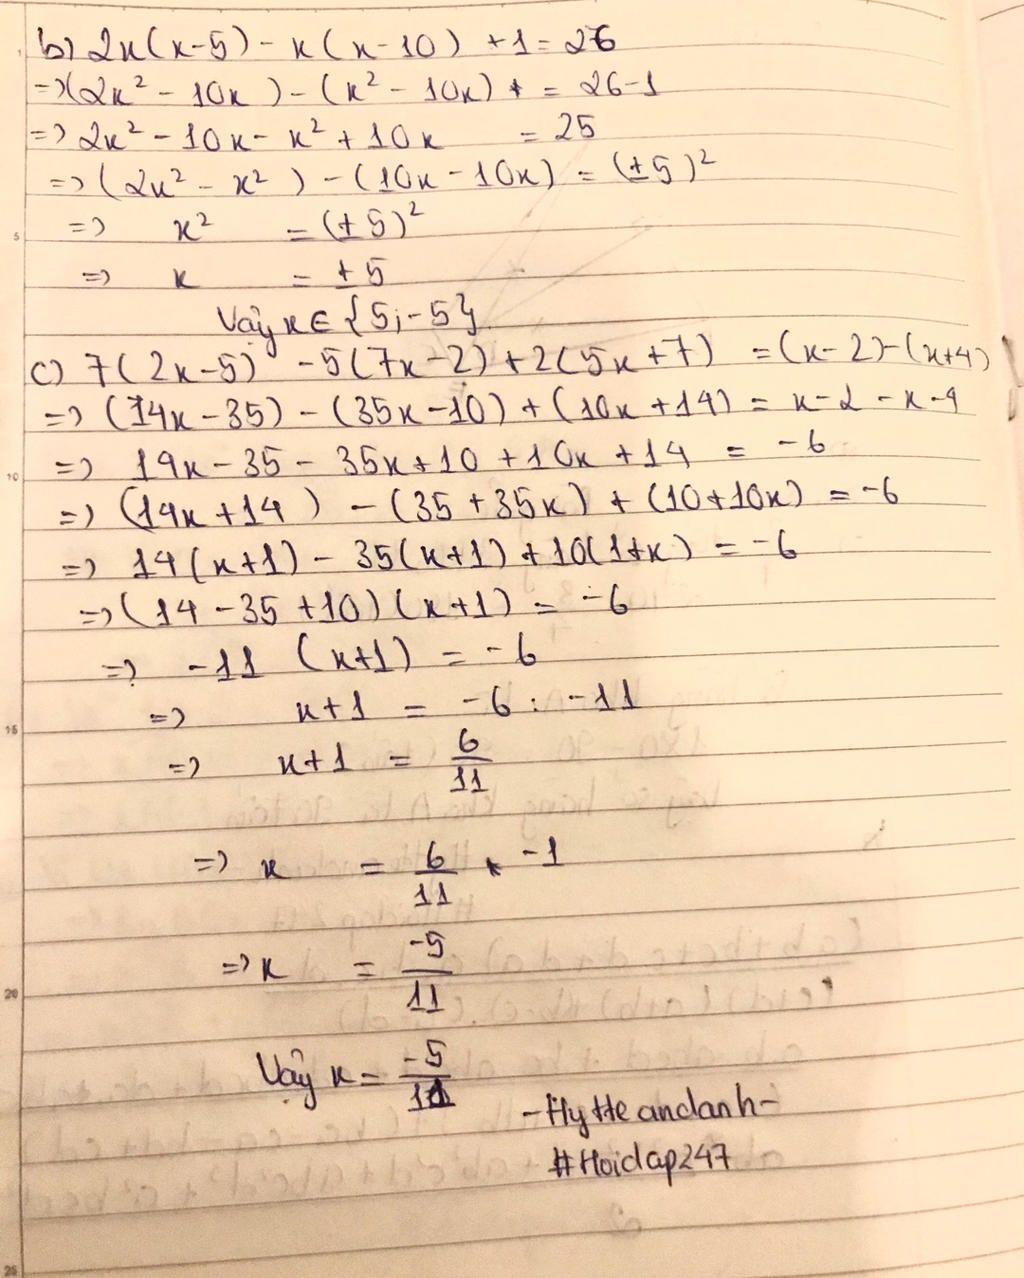 b) 2x(x-5) - x(x-10) +1 = 26
=> (2x² - 10x) - (x² - 10x) = 26-1
=> 2x² - 10x - x² + 10x = 25
=> (2x² - x²) - (10x - 10x) = (±5)²
=> x² = (±5)²
=> x = ±5
Vậy x ∈ {5;-5}
c) 7(2x-5) - 5(7x-2) + 2(5x+7) = (x-2)-(x+4)
=> (14x-35) - (35x-10) + (10x+14) = x-2-x-4
=> 14x - 35 - 35x + 10 + 10x + 14 = -6
=> (14x+14) - (35+35x) + (10+10x) = -6
=> 14(x+1) - 35(x+1) + 10(1+x) = -6
=> (14-35+10)(x+1) = -6
=> -11 (x+1) = -6
=> x+1 = -6 : -11
=> x+1 = 6/11
=> x = 6/11 -1
=> x = -5/11
Vậy x = -5/11
-Hytteandanh-
#Hoidap247
5
10
15
20
25